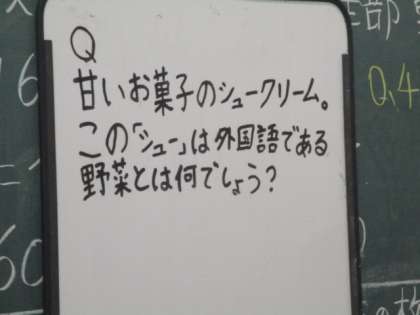 Q
甘いお菓子のシュークリーム。
この「シュー」は外国語である
野菜とは何でしょう?
Q.4
16
60